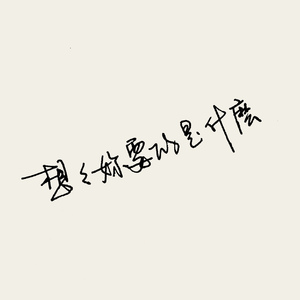 想想妳要的是什麼